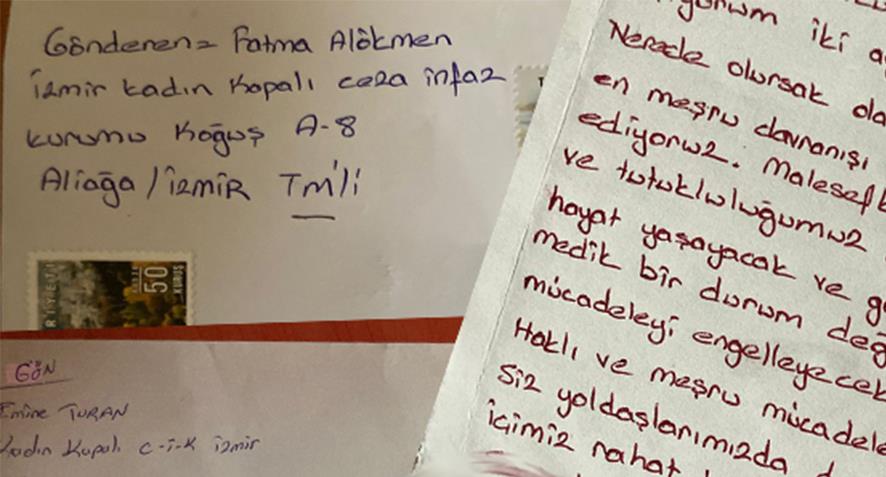 Gönderen= Fatma Alökmen
İzmir kadın Kapalı ceza infaz
kurumu Koğuş A-8
Aliağa / İZMİR TM'li
50
KURUŞ
GÖN
Emine TURAN
Kadın Kapalı C-İ-K İzmir
iki
Nerede olursak
en meşru davranışı
ediyoruz. Malesef
ve tutukluluğumuz
hayat yaşayacak ve
medik bir durum
mücadeleyi
Haklı ve meşru
Siz yoldaşlarımızda
içimiz rahat